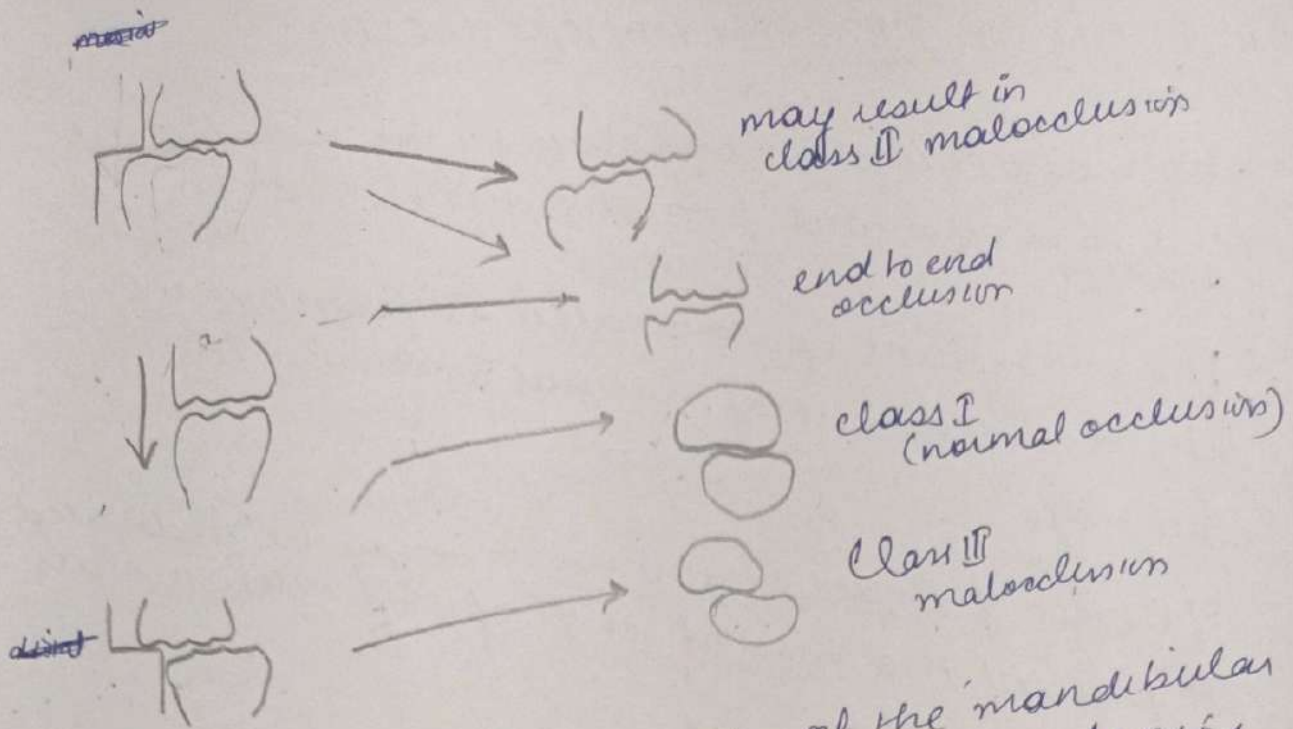 may result in
class II malocclusion
end to end
occlusion
class I
(normal occlusion)
Class III
malocclusion
of the mandibular